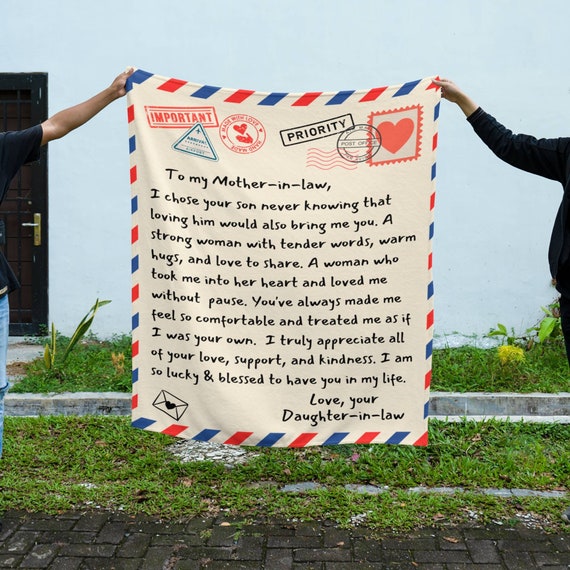 IMPORTANT
ARRIVAL
MADE WITH LOVE
HAND MADE
PRIORITY
POST OFFICE
To my Mother-in-law,
I chose your son never knowing that
loving him would also bring me you. A
strong woman with tender words, warm
hugs, and love to share. A woman who
took me into her heart and loved me
without pause. You've always made me
feel so comfortable and treated me as if
I was your own. I truly appreciate all
of your love, support, and kindness. I am
so lucky & blessed to have you in my life.
Love, your
Daughter-in-law